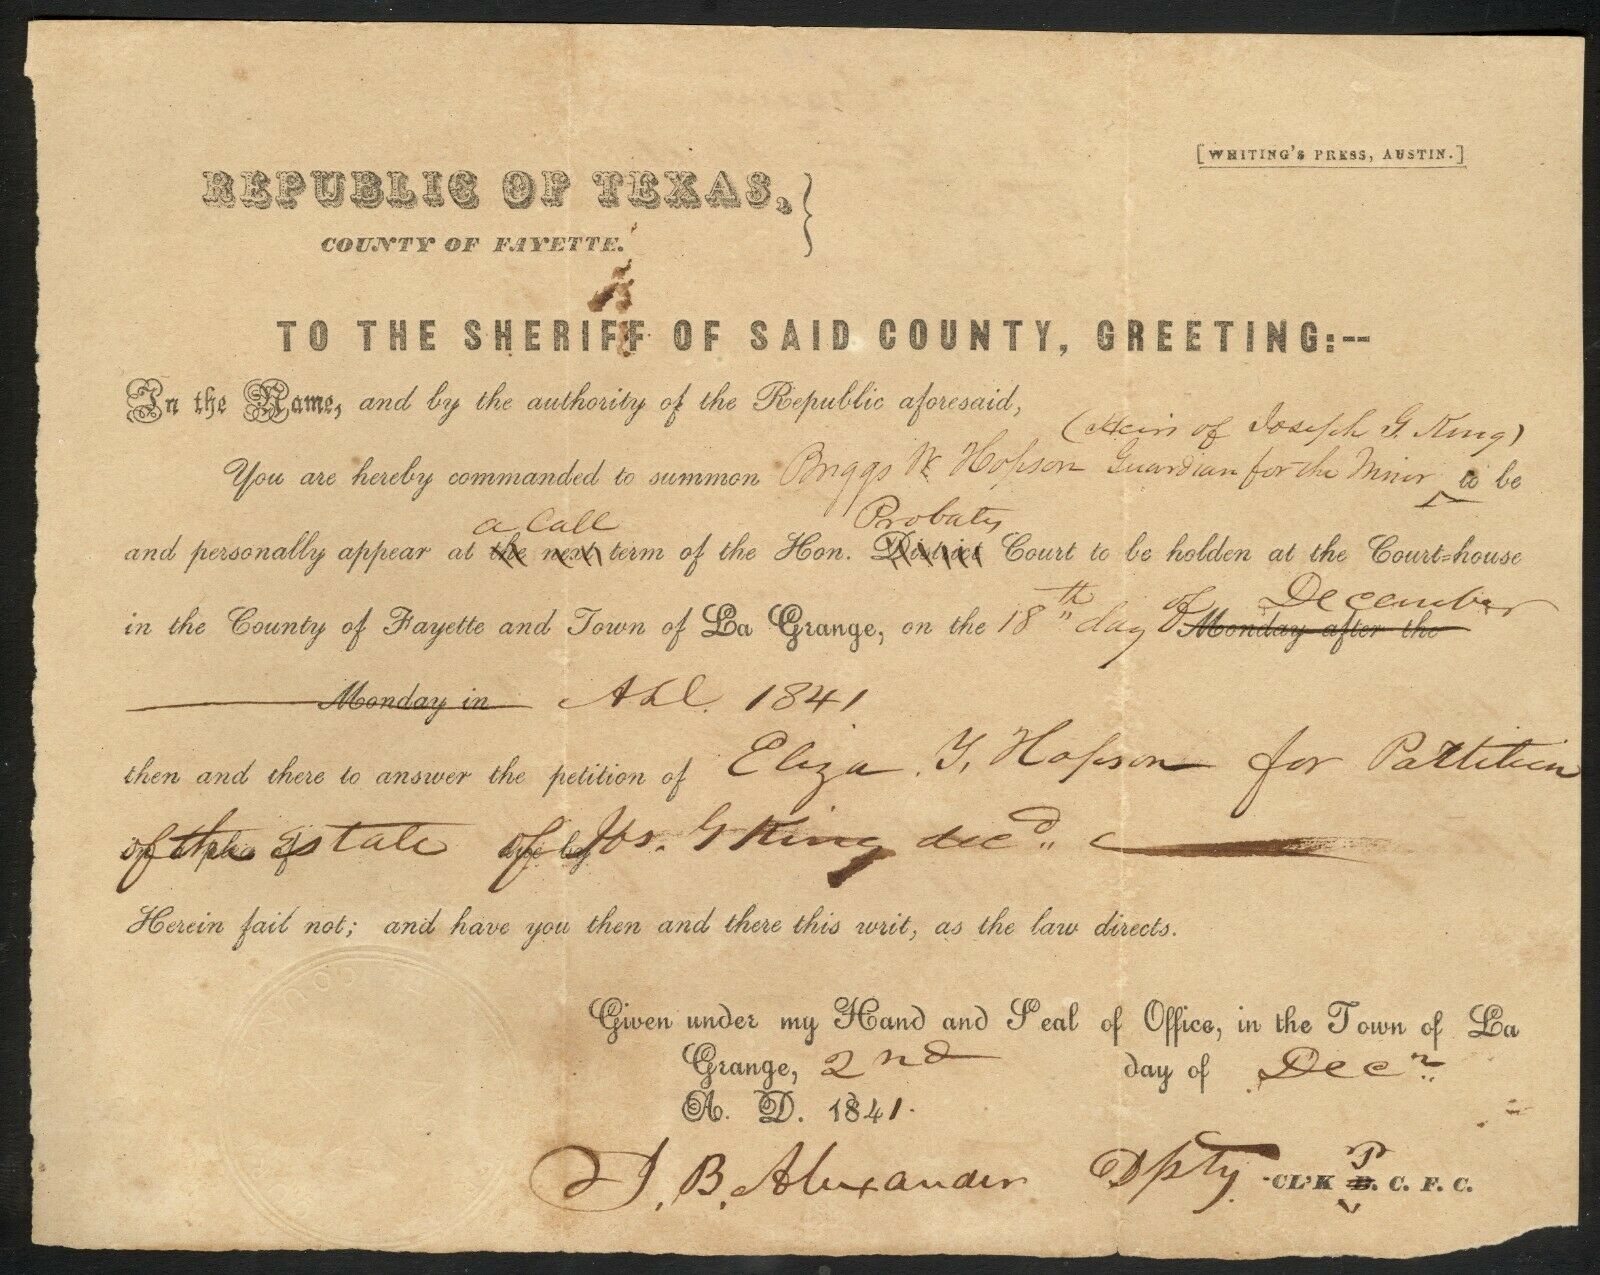 [WHITING'S PRESS, AUSTIN.]
REPUBLIC OF TEXAS, }
COUNTY OF FAYETTE.
TO THE SHERIFF OF SAID COUNTY, GREETING:--
In the Name, and by the authority of the Republic aforesaid,
(Heir of Joseph G. King)
You are hereby commanded to summon Briggs W Hopson Guardian for the Minor to be
a Call Probate
and personally appear at the next term of the Hon. District Court to be holden at the Court-house
of December
in the County of Fayette and Town of La Grange, on the 18th day Monday after the
Monday in A.D. 1841
then and there to answer the petition of Eliza Y. Hopson for Partition
of the Estate of Jos. G King decd.
Herein fail not; and have you then and there this writ, as the law directs.
Given under my Hand and Seal of Office, in the Town of La
Grange, 2nd day of Decr
A. D. 1841.
B. Alexander Dpty CL'K P D. C. F. C.